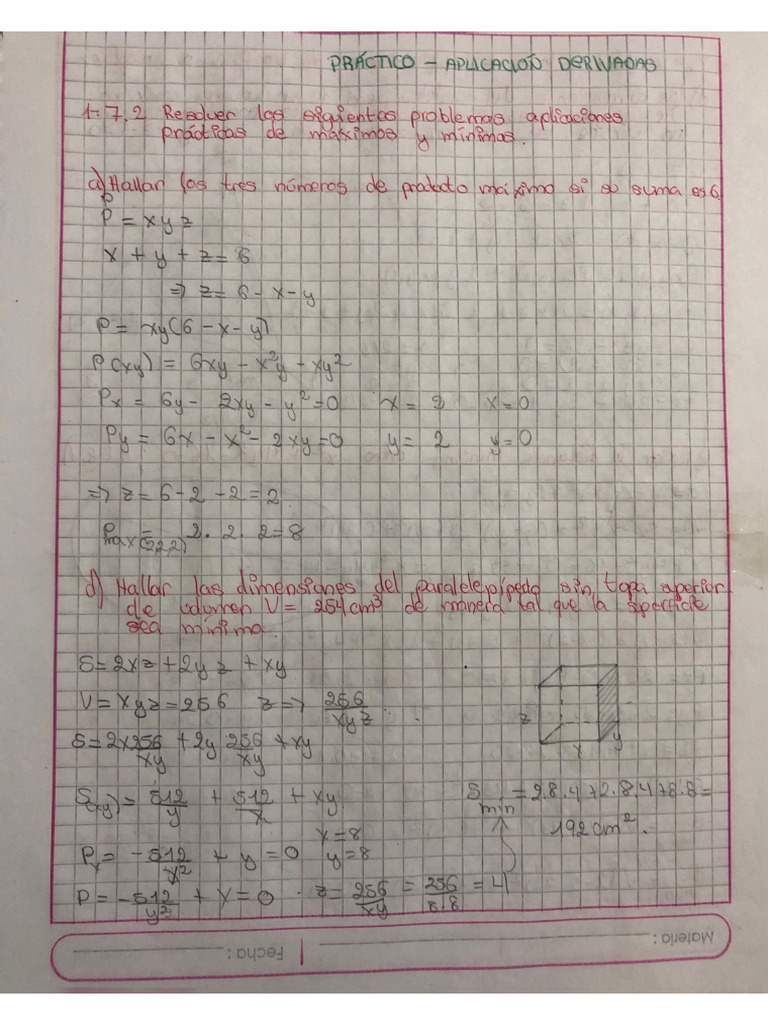 PRÁCTICO - APLICACIÓN DERIVADAS
1- 7.2 Resolver los siguientes problemas aplicaciones
prácticas de máximos y mínimas.
a) Hallar los tres números de producto máximo si su suma es 6
P = xyz
x + y + z = 6
⇒ z = 6 - x - y
P = xy(6 - x - y)
P(xy) = 6xy - x²y - xy²
Px = 6y - 2xy - y² = 0 x = 2 x = 0
Py = 6x - x² - 2xy = 0 y = 2 y = 0
⇒ z = 6 - 2 - 2 = 2
Pmax(2,2,2) = 2 . 2 . 2 = 8
d) Hallar las dimensiones del paralelepípedo sin tapa superior
de volumen V = 254cm³ de manera tal que la superficie
sea mínima.
S = 2xz + 2yz + xy
V = xyz = 256 z ⇒ 256/xyz
z
x
y
S = 2x 256/xy + 2y 256/xy + xy
S(xy) = 512/y + 512/x + xy
Px = -512/x² + y = 0
P = -512/y² + x = 0
x = 8
y = 8
z = 256/xy = 256/8.8 = 4
S min = 2.8.4 + 2.8.4 + 8.8 =
192 cm².
Materia:
Fecha: